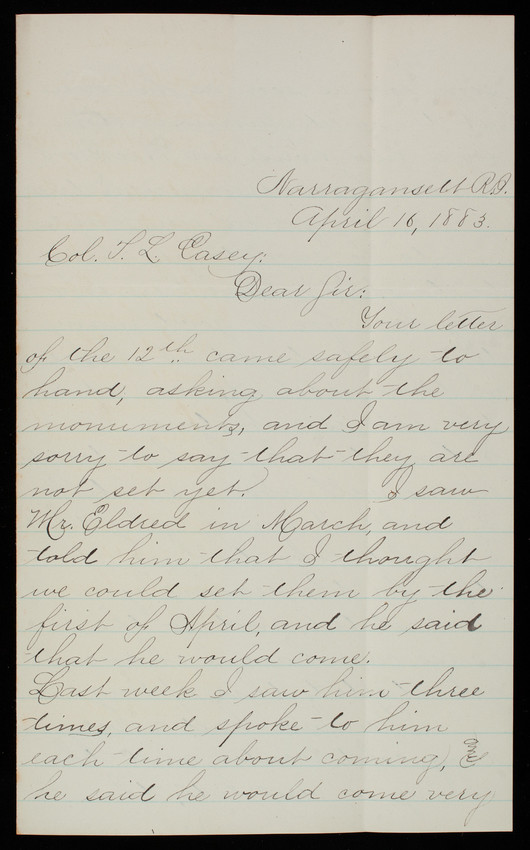 Narragansett R.I.
April 16, 1883.
Col. T. L. Casey:
Dear Sir:
Your letter
of the 12th. came safely to
hand, asking about the
monuments, and I am very
sorry to say that they are
not set yet. I saw
Mr. Eldred in March, and
told him that I thought
we could set them by the
first of April, and he said
that he would come.
Last week I saw him three
times, and spoke to him
each time about coming, and
he said he would come very